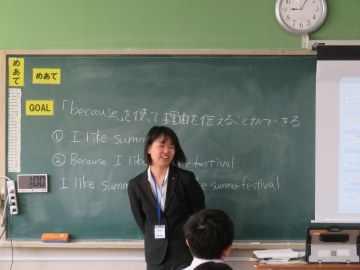 めあて
めあて
GOAL 「because」を使って理由を伝えることができる
① I like summ
② Because I like festival
I like sum summer festival
100